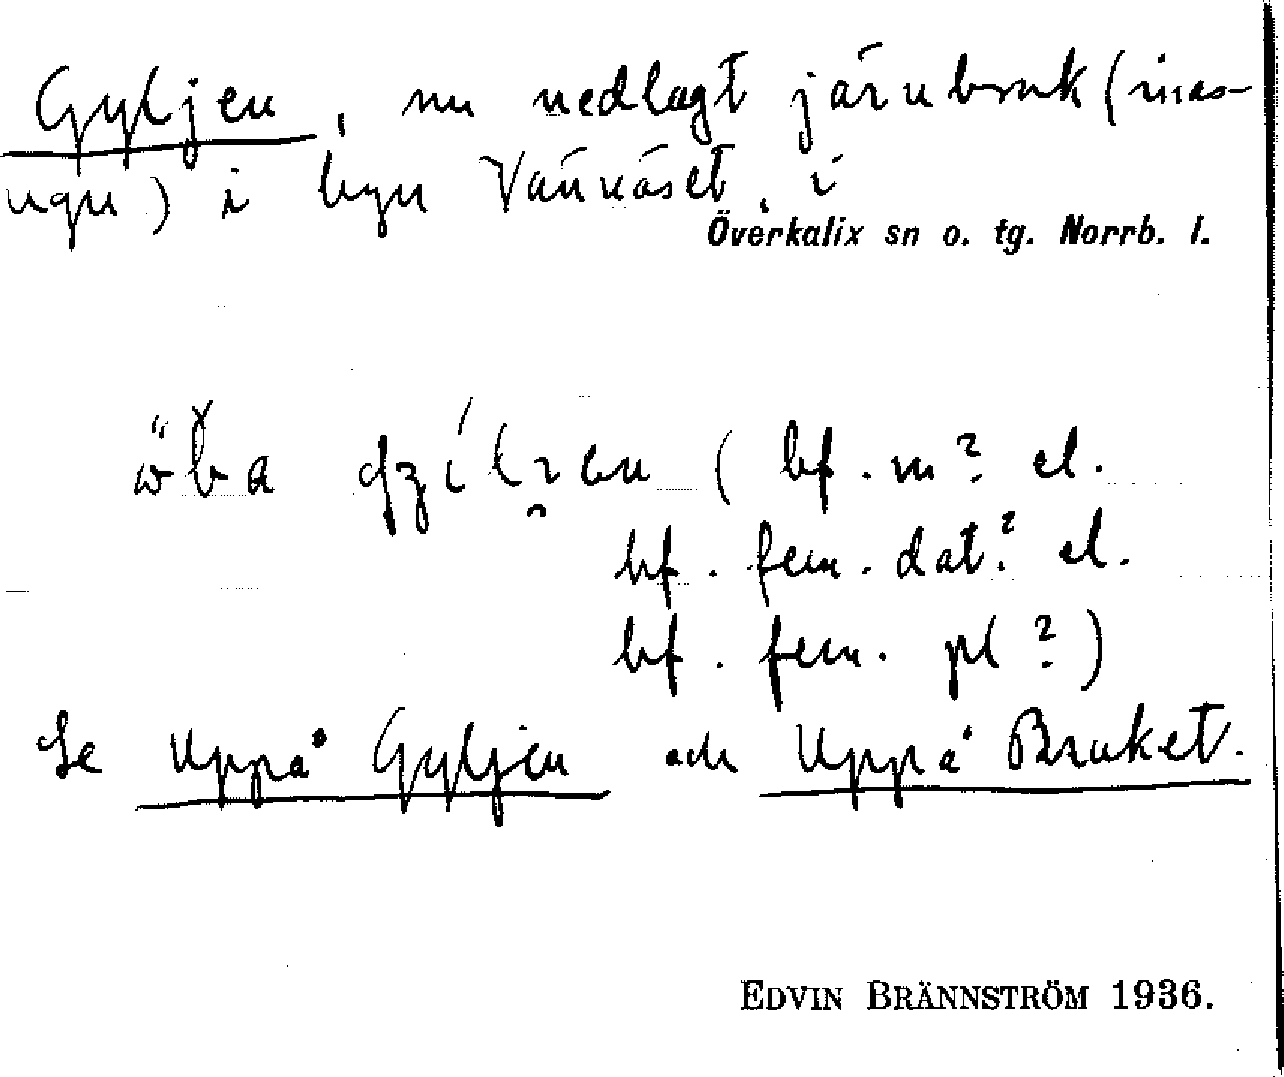 Gyljen, nu nedlagt järnbruk (mas-
ugn) i byn Vännäset, i
Överkalix sn o. tg. Norrb. l.
(bf. m? el.
bf. fem. dat.? el.
bf. fem. pl?)
Se Uppå Gyljen och Uppå Bruket.
EDVIN BRÄNNSTRÖM 1936.